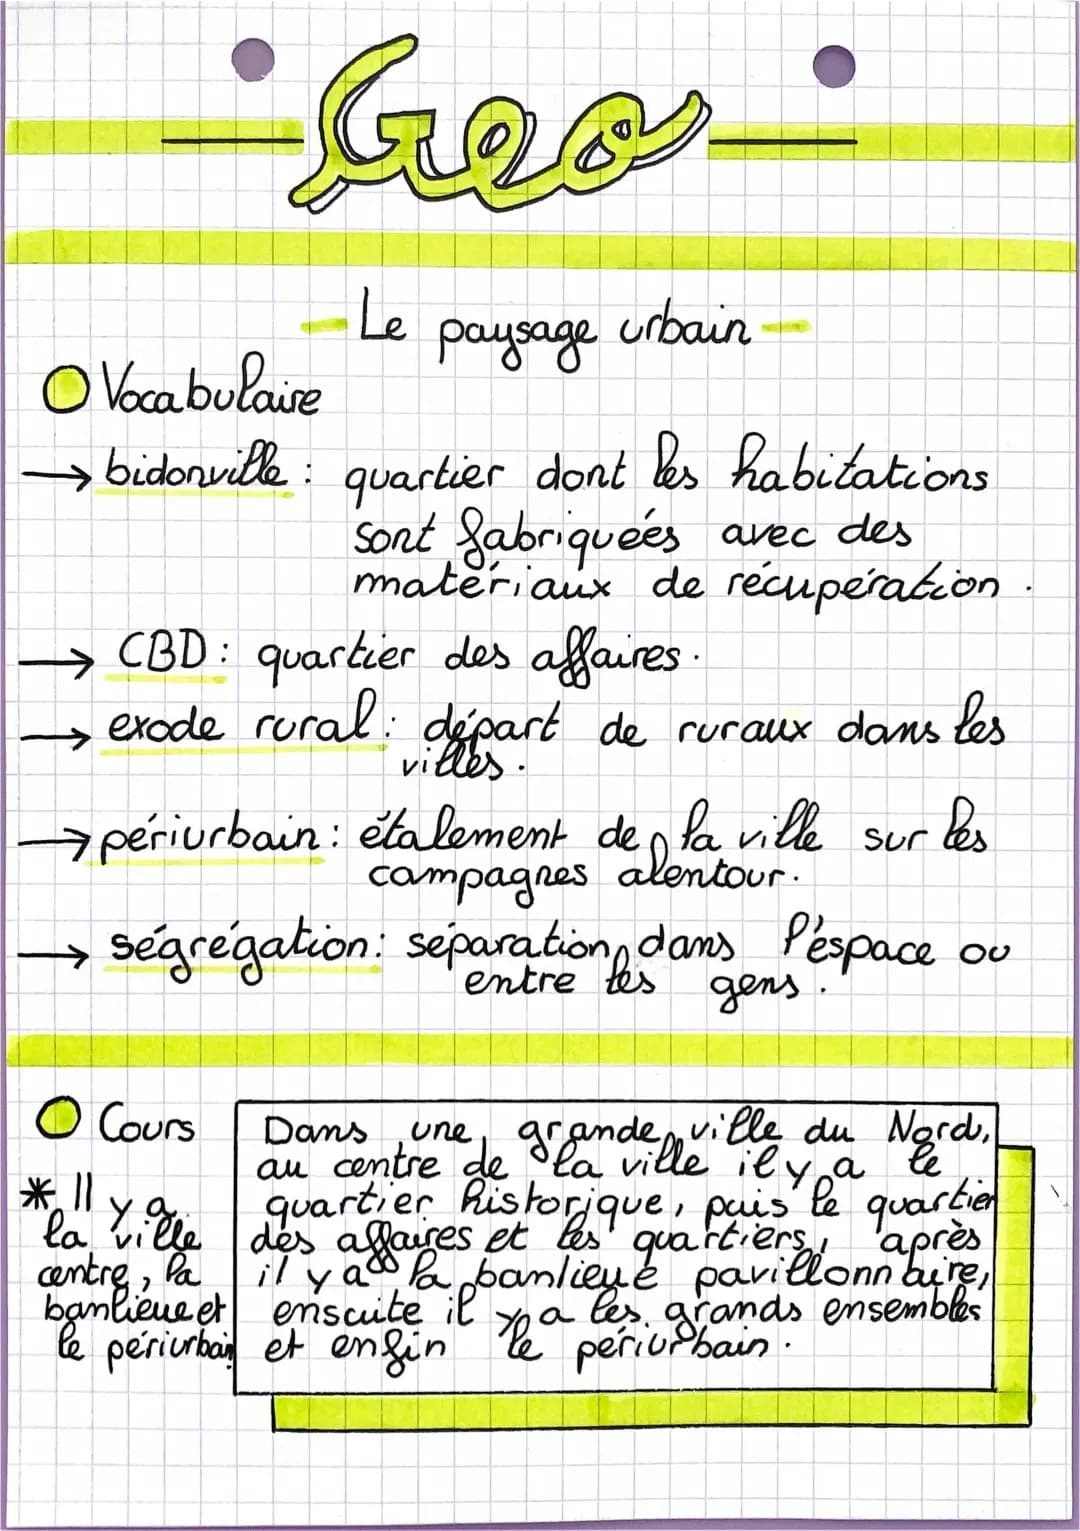 Geo
Le paysage urbain
Vocabulaire
→ bidonville : quartier dont les habitations
sont fabriqueés avec des
matériaux de récupération.
→ CBD : quartier des affaires.
→ exode rural : départ de ruraux dans les
villes.
→ périurbain : étalement de la ville sur les
campagnes alentour.
→ ségrégation : séparation dans l'espace ou
entre les gens.
Cours
* Il y a
la ville
centre, la
banlieue et
le périurbain
Dans une grande ville du Nord,
au centre de la ville il y a le
quartier historique, puis le quartier
des affaires et les quartiers, après
il y a la banlieue pavillonnaire,
ensuite il y a les grands ensembles
et enfin le périurbain.